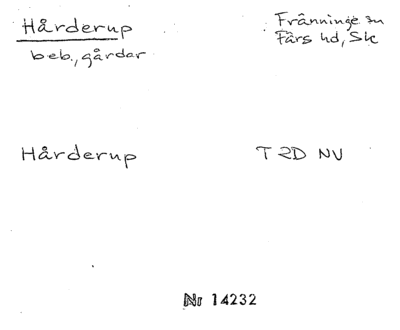 Hårderup
Fränninge sn
Färs hd, Sk
beb., gårdar
Hårderup
T 2D NV
Nr 14232